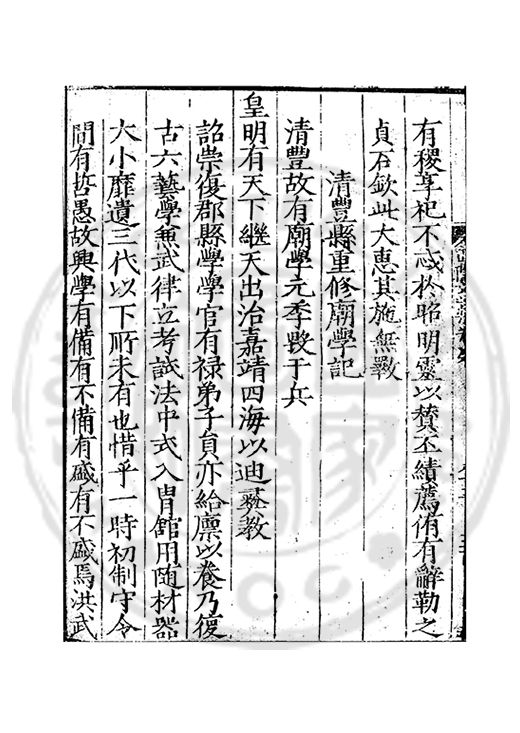 有稷享祀不忒於昭明靈以賛丕績薦侑有辭勒之
貞石欽此大惠其施無斁
清豐縣重修廟學記
清豐故有廟學元季燬于兵
皇明有天下繼天出治嘉靖四海以迪彛教
詔崇復郡縣學學官有禄弟子員亦給廪以養乃復
古六藝學兼武律立考試法中式入胄館用随材器
大小靡遺三代以下所未有也惜乎一時初制守令
間有哲愚故興學有備有不備有盛有不盛焉洪武